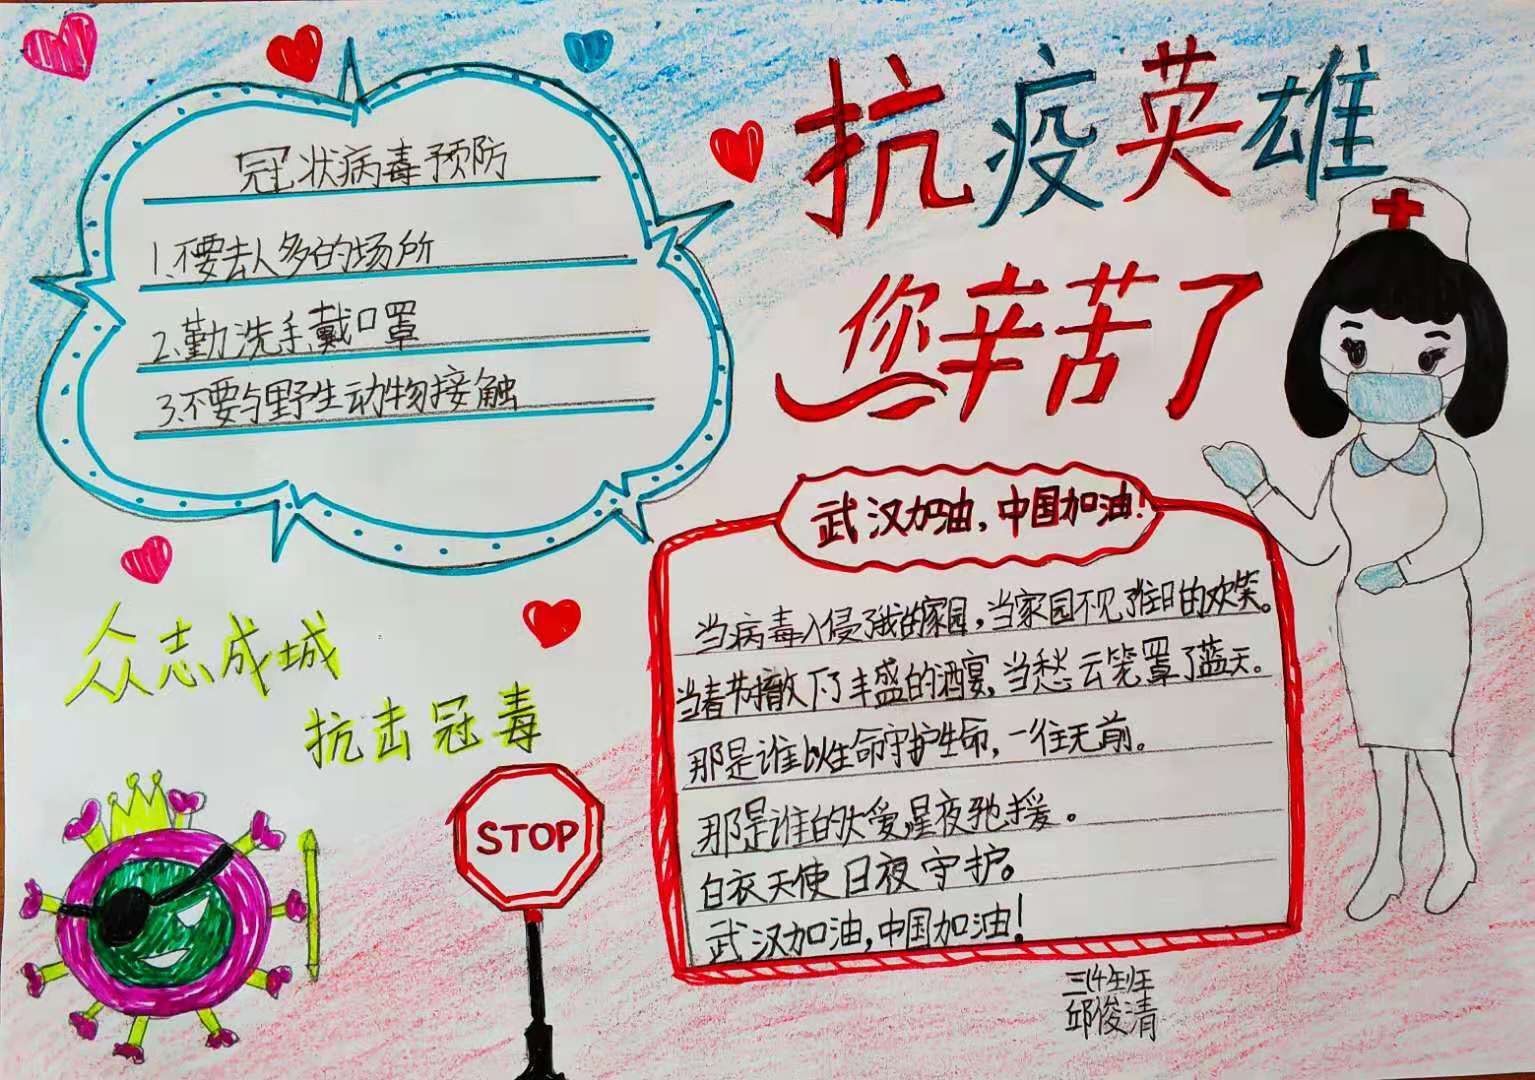 抗疫英雄
您辛苦了
冠状病毒预防
1、不要去人多的场所
2、勤洗手、戴口罩
3、不要与野生动物接触
众志成城
抗击冠毒
STOP
武汉加油,中国加油!
当病毒入侵了我的家园,当家园不见了往日的欢笑。
当春节撤下了丰盛的酒宴,当愁云笼罩了蓝天。
那是谁以生命守护生命,一往无前。
那是谁的大爱,星夜驰援。
白衣天使日夜守护。
武汉加油,中国加油!
邱俊清